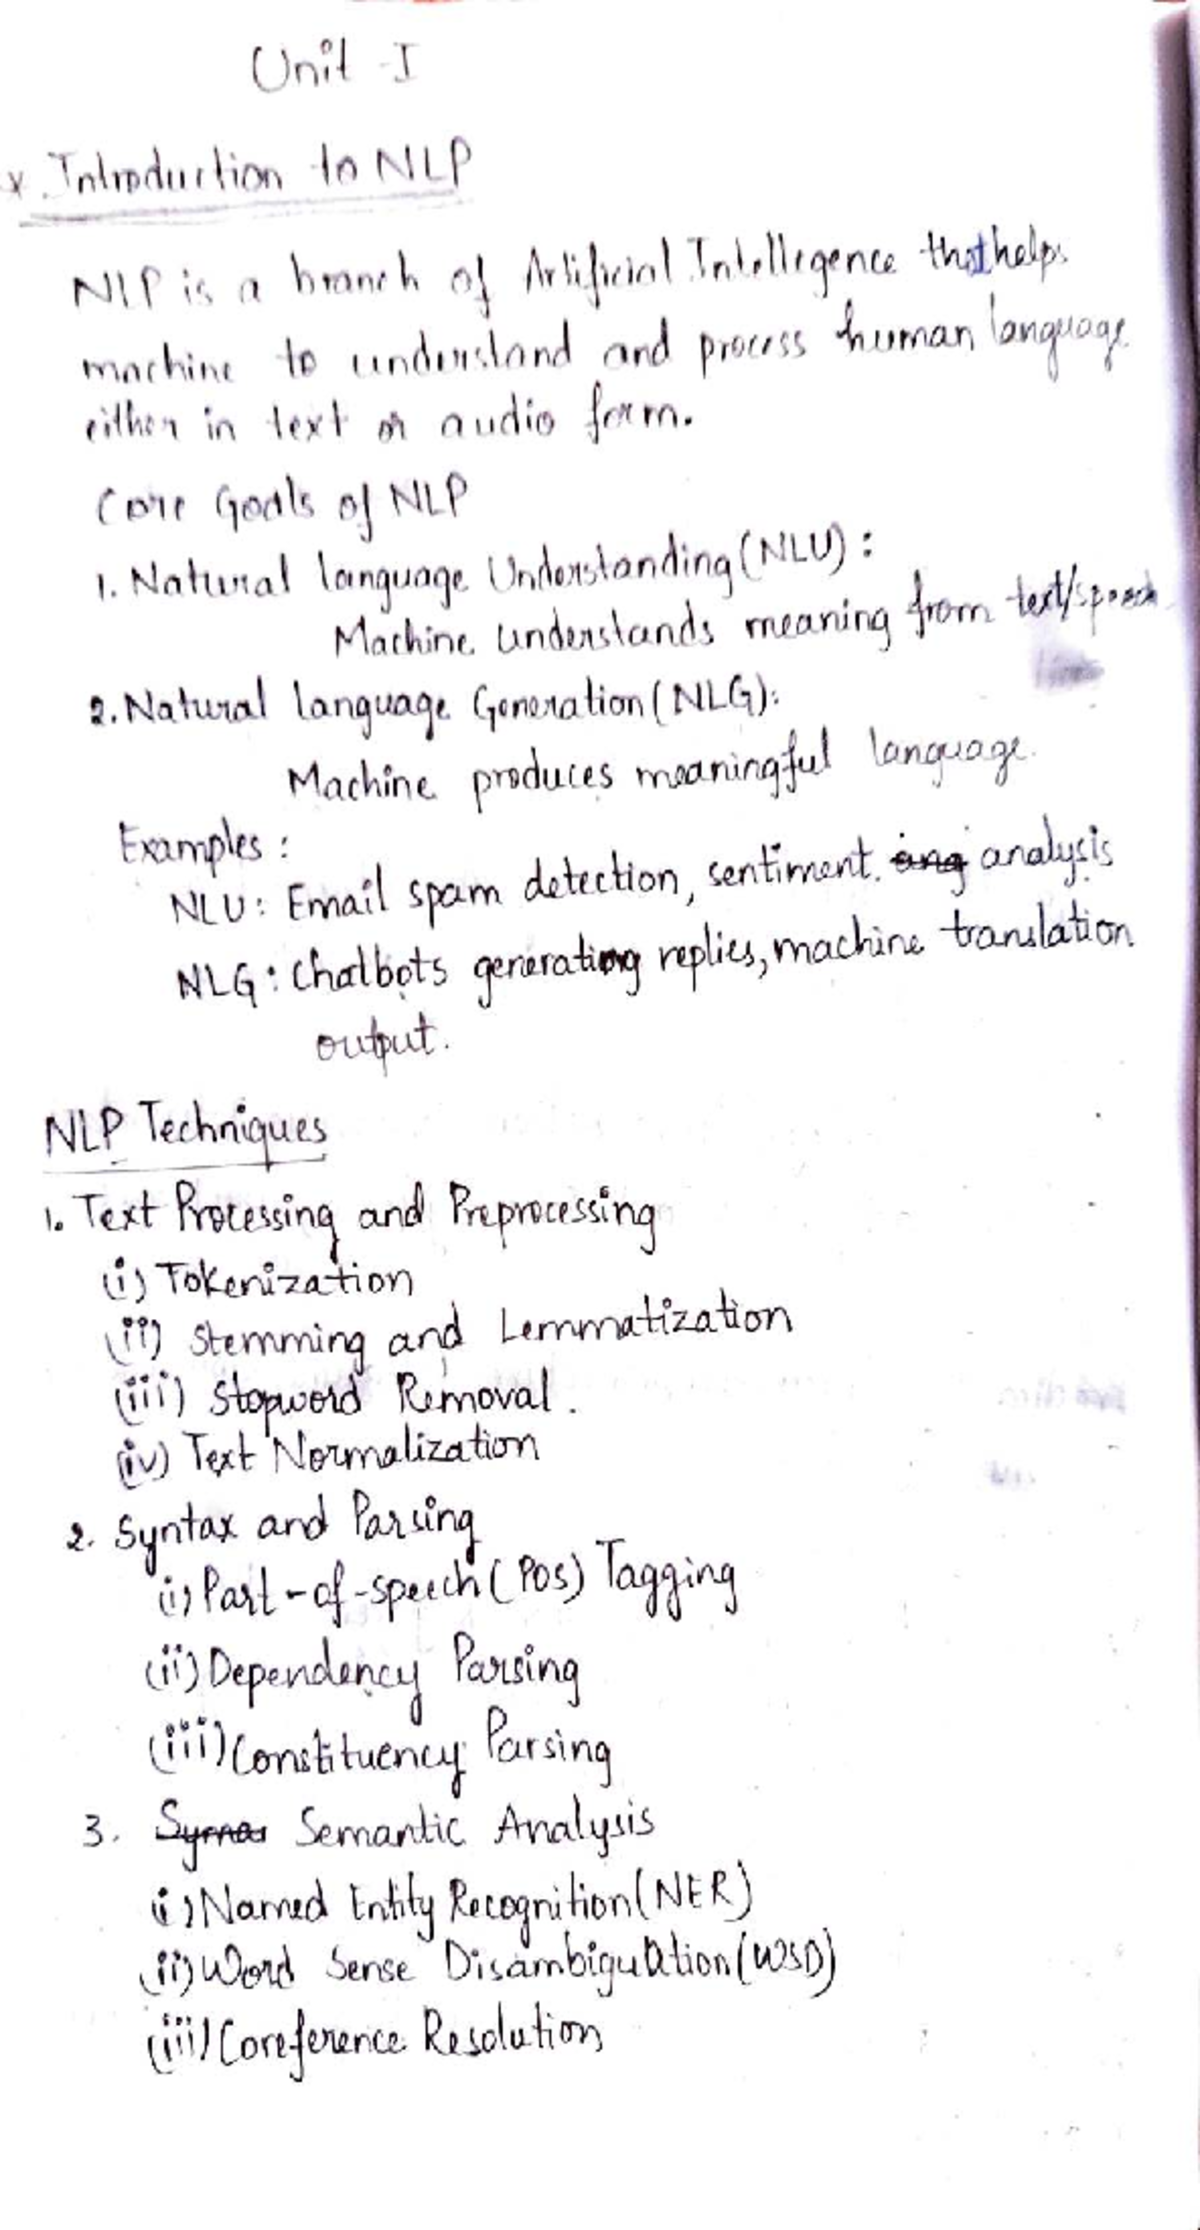 Unit - I
x. Introduction to NLP
NLP is a branch of Artificial Intellegence that helps
machine to understand and process human language
either in text or audio form.
Core Goals of NLP
1. Natural language Understanding (NLU) :
Machine understands meaning from text/speech
2. Natural language Generation (NLG):
Machine produces meaningful language.
Examples :
NLU : Email spam detection, sentiment. ang analysis
NLG : Chatbots generating replies, machine translation
output.
NLP Techniques
1. Text Processing and Preprocessing
(i) Tokenization
(ii) Stemming and Lemmatization
(iii) Stopword Removal.
(iv) Text Normalization
2. Syntax and Parsing
(i) Part-of-speech (POS) Tagging
(ii) Dependency Parsing
(iii) Constituency Parsing
3. Semantic Analysis
(i) Named Entity Recognition (NER)
(ii) Word Sense Disambiguation (WSD)
(iii) Coreference Resolution